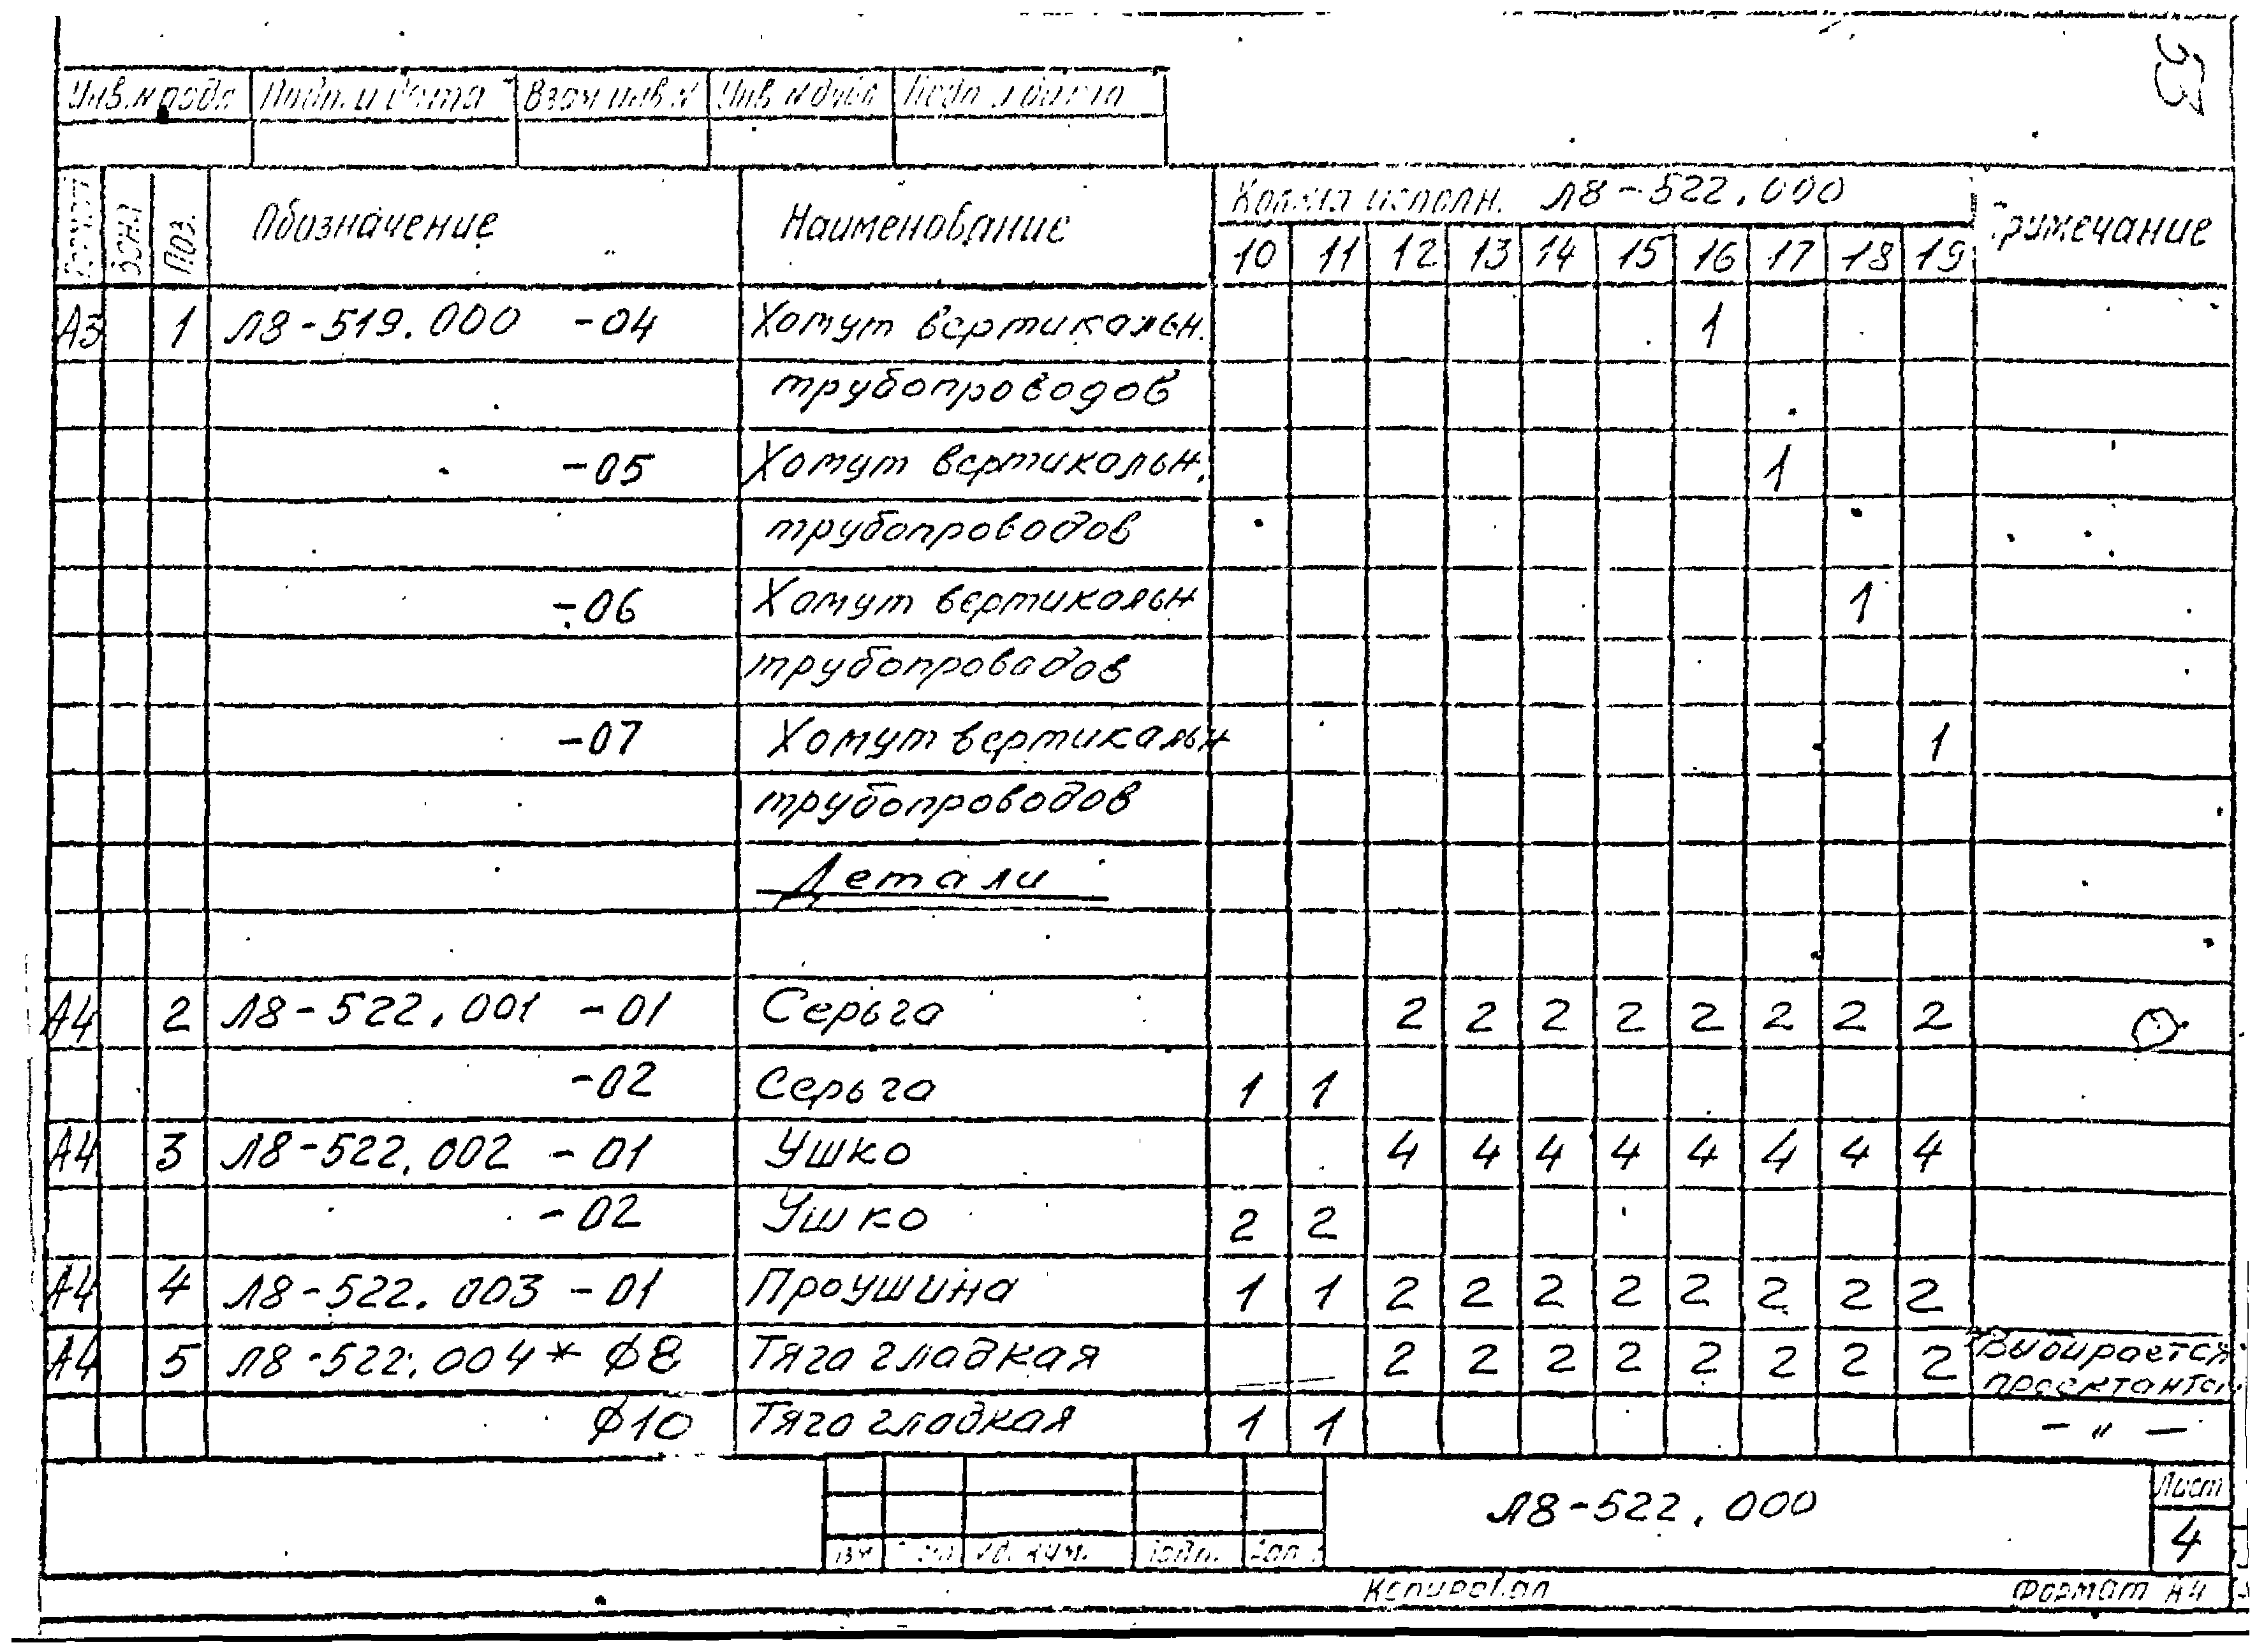 53
Инв. N подл Подп. и дата Взам инв. N Инв. N дубл Подп и дата
Формат Зона Поз. Обозначение Наименование Кол. на исполн. Л8-522.000 Примечание
10 11 12 13 14 15 16 17 18 19
А3 1 Л8-519.000 -04 Хомут вертикальн. 1
трубопроводов
-05 Хомут вертикальн. 1
трубопроводов
-06 Хомут вертикальн 1
трубопроводов
-07 Хомут вертикальн 1
трубопроводов
Детали
А4 2 Л8-522.001 -01 Серьга 2 2 2 2 2 2 2 2
-02 Серьга 1 1
А4 3 Л8-522.002 -01 Ушко 4 4 4 4 4 4 4 4
-02 Ушко 2 2
А4 4 Л8-522.003 -01 Проушина 1 1 2 2 2 2 2 2 2 2
А4 5 Л8-522.004* ⌀8 Тяга гладкая 2 2 2 2 2 2 2 2 *Выбирается
проектантом
⌀10 Тяга гладкая 1 1 - " -
Л8-522.000
Лист
4
докум. Подп.
Копировал Формат А4